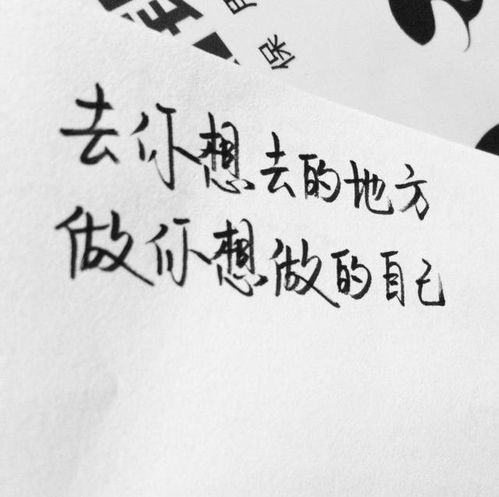 保
去你想去的地方
做你想做的自己